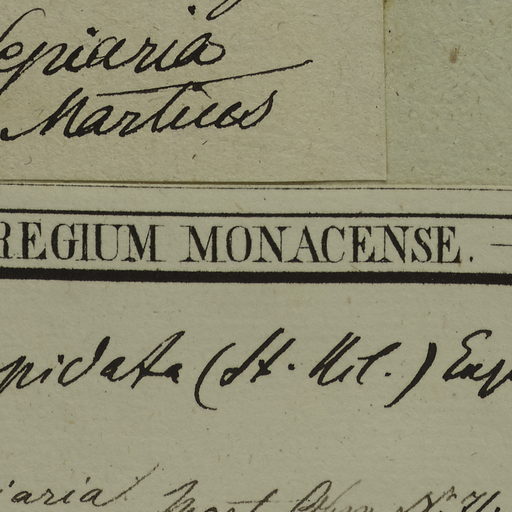 epiaria
Martius
REGIUM MONACENSE. —
pidata (St. Hil.) Eng
iaria Mart.